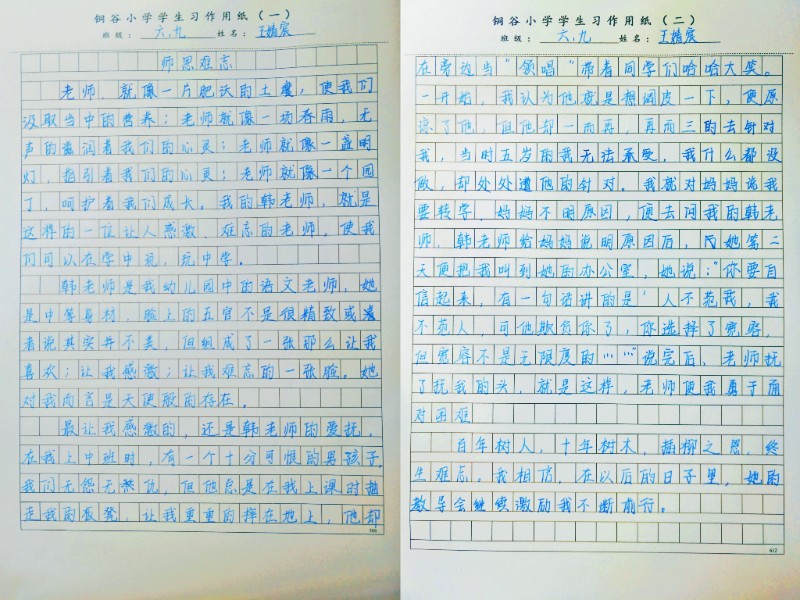 铜谷小学学生习作用纸（一）
班级：六.九 姓名：王皓宸
师恩难忘
老师，就像一片肥沃的土壤，使我们
汲取当中的营养；老师就像一场春雨，无
声的滋润着我们的心灵；老师就像一盏明
灯，指引着我们的心灵；老师就像一个园
丁，呵护着我们成长。我的韩老师，就是
这样的一位让人感激、难忘的老师，使我
们可以在学中玩，玩中学。
韩老师是我幼儿园中的语文老师，她
是中等身材，脸上的五官不是很精致或者
者说其实并不美，但组成了一张那么让我
喜欢；让我感激；让我难忘的一张脸。她
对我而言是天使般的存在。
最让我感激的，还是韩老师的爱抚，
在我上中班时，有一个十分可恨的男孩子，
我们无怨无仇，但他总是在我上课时抽
走我的板凳，让我重重的摔在地上，他却
380
铜谷小学学生习作用纸（二）
班级：六.九 姓名：王皓宸
在旁边当“领唱”带着同学们哈哈大笑。
一开始，我认为他就是想调皮一下，便原
谅了他，但他却一而再，再而三的去针对
我，当时五岁的我无法承受，我什么都没
做，却处处遭他的针对。我就对妈妈说我
要转学，妈妈不明原因，便去问我的韩老
师，韩老师给妈妈说明原因后，她第二
天便把我叫到她的办公室，她说：“你要自
信起来，有一句话讲的是‘人不犯我，我
不犯人，可他欺负你了，你选择了宽容，
但宽容不是无限度的……”说完后，老师抚
了抚我的头，就是这样，老师使我勇于面
对困难
百年树人，十年树木，插柳之恩，终
生难忘。我相信，在以后的日子里，她的
教导会继续激励我不断前行。
612